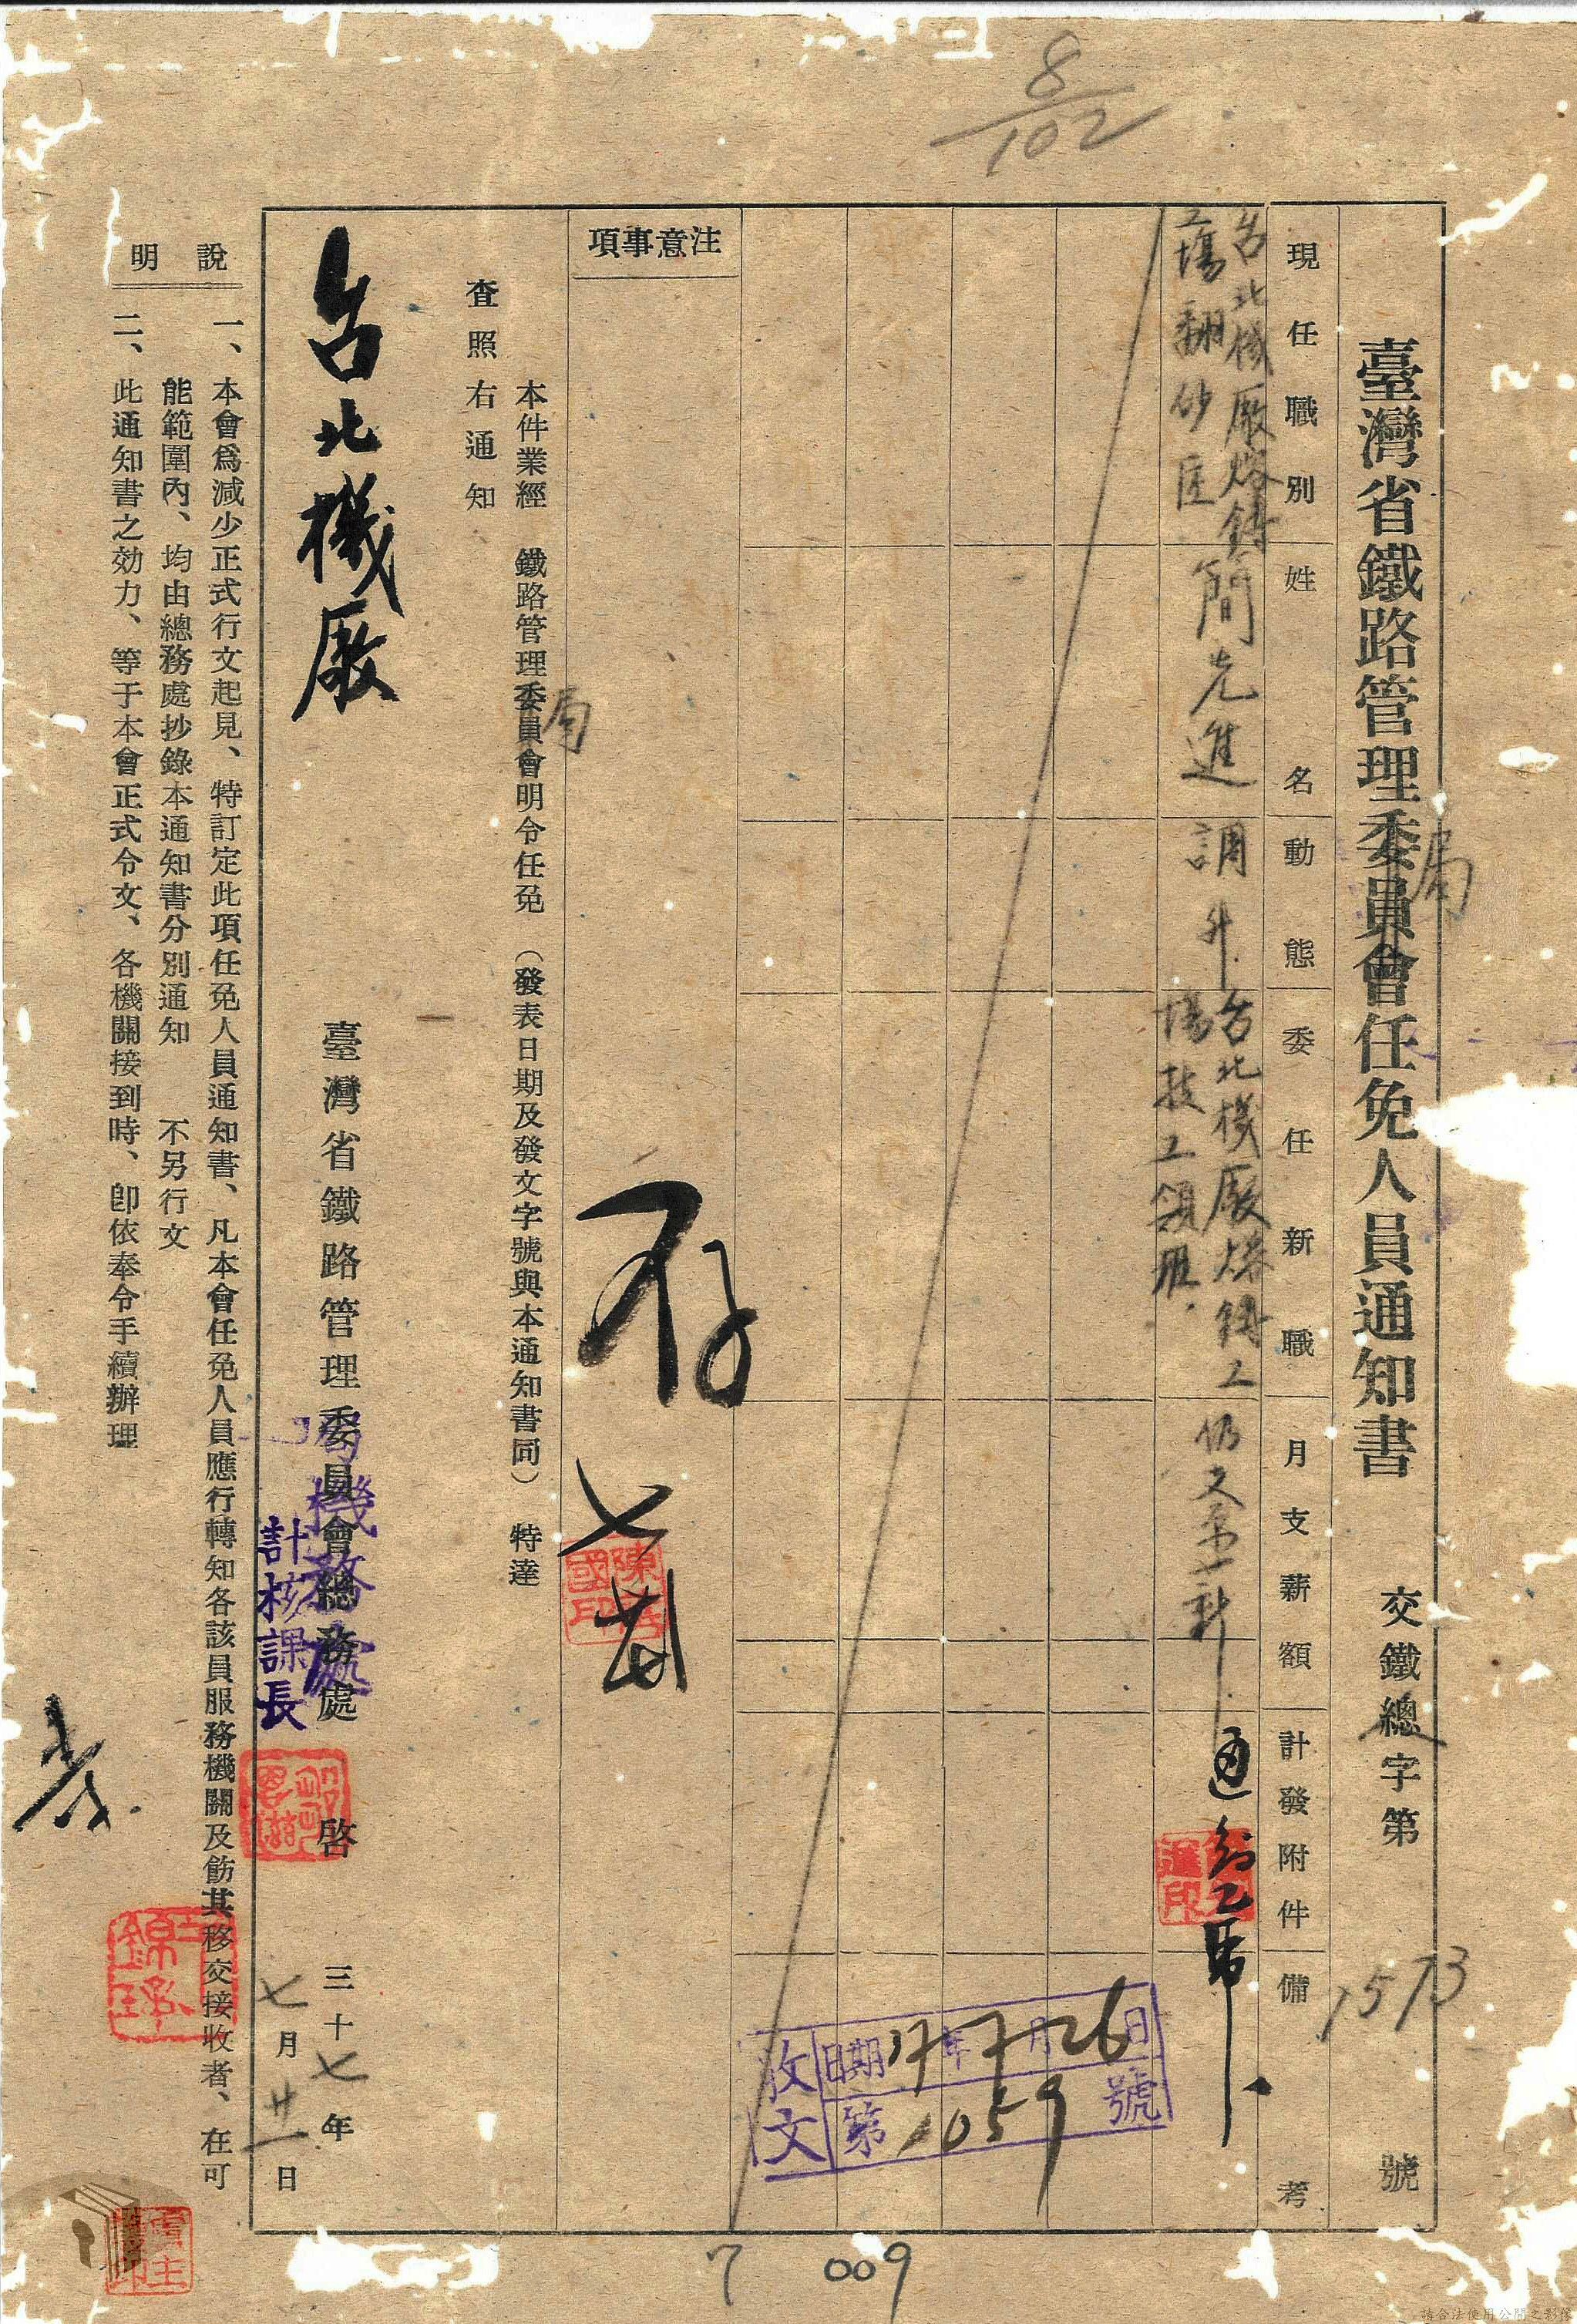 8/102
臺灣省鐵路管理委員會任免人員通知書 交鐵總字第1573號
局
現任職別 姓名 動態 委任新職 月支薪額 計發附件 備考
台北機廠熔鑄工場翻砂匠 簡先進 調升 台北機廠熔鑄工場技工領班 仍支原薪
通知乙帋
收文 日期37年7月26日
第1059號
注意事項
存
七
本件業經 鐵路管理委員會明令任免 (發表日期及發文字號與本通知書同) 特達
局
查照右通知
台北機廠
臺灣省鐵路管理委員會總務處 啓 三十七年
局機務處
計核課長
七月廿一日
說明
一、本會爲減少正式行文起見、特訂定此項任免人員通知書、凡本會任免人員應行轉知各該員服務機關及飭其移交接收者、在可
能範圍內、均由總務處抄錄本通知書分別通知 不另行文
二、此通知書之効力、等于本會正式令文、各機關接到時、卽依奉令手續辦理
7 009
請合法使用公開之影像